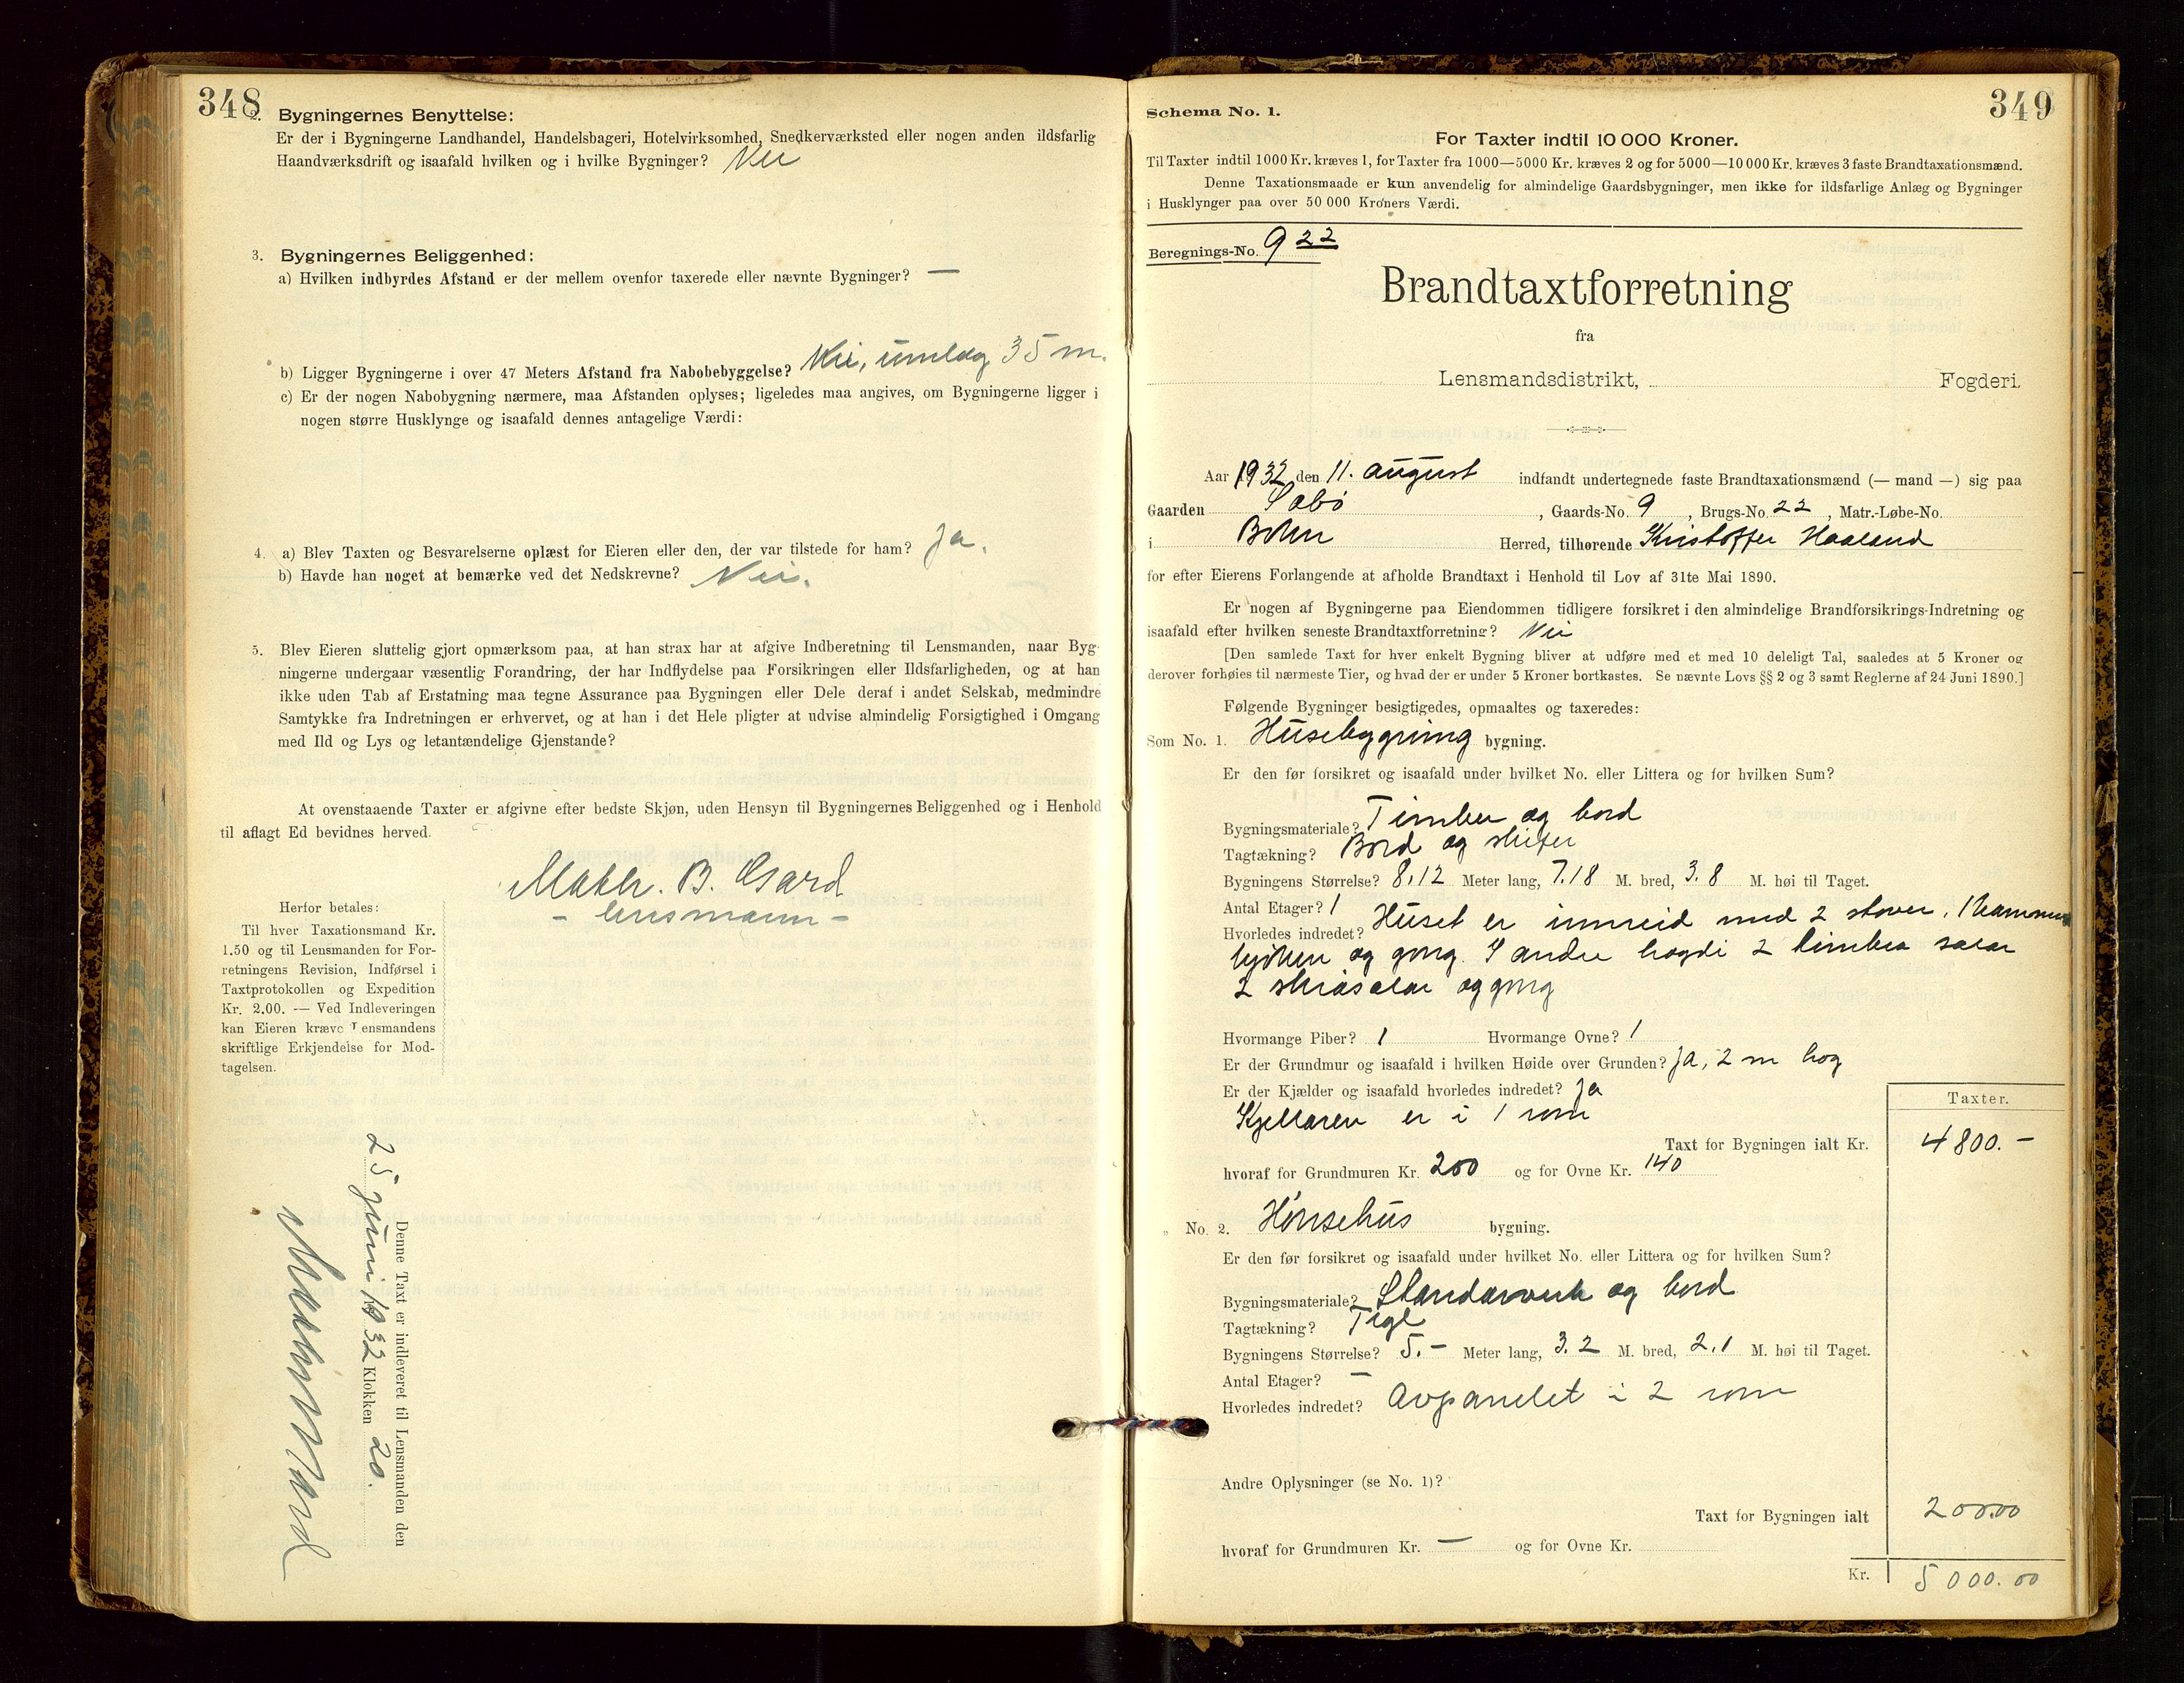 348
2. Bygningernes Benyttelse:
Er der i Bygningerne Landhandel, Handelsbageri, Hotelvirksomhed, Snedkerværksted eller nogen anden ildsfarlig
Haandværksdrift og isaafald hvilken og i hvilke Bygninger? Nei
3. Bygningernes Beliggenhed:
a) Hvilken indbyrdes Afstand er der mellem ovenfor taxerede eller nævnte Bygninger? —
b) Ligger Bygningerne i over 47 Meters Afstand fra Nabobebyggelse? Nei, umlag 35 m.
c) Er der nogen Nabobygning nærmere, maa Afstanden oplyses; ligeledes maa angives, om Bygningerne ligger i
nogen større Husklynge og isaafald dennes antagelige Værdi:
4. a) Blev Taxten og Besvarelserne oplæst for Eieren eller den, der var tilstede for ham? Ja.
b) Havde han noget at bemærke ved det Nedskrevne? Nei.
5. Blev Eieren sluttelig gjort opmærksom paa, at han strax har at afgive Indberetning til Lensmanden, naar Byg-
ningerne undergaar væsentlig Forandring, der har Indflydelse paa Forsikringen eller Ildsfarligheden, og at han
ikke uden Tab af Erstatning maa tegne Assurance paa Bygningen eller Dele deraf i andet Selskab, medmindre
Samtykke fra Indretningen er erhvervet, og at han i det Hele pligter at udvise almindelig Forsigtighed i Omgang
med Ild og Lys og letantændelige Gjenstande?
At ovenstaaende Taxter er afgivne efter bedste Skjøn, uden Hensyn til Bygningernes Beliggenhed og i Henhold
til aflagt Ed bevidnes herved.
B. Gard
- lensmann -
Herfor betales:
Til hver Taxationsmand Kr.
1.50 og til Lensmanden for For-
retningens Revision, Indførsel i
Taxtprotokollen og Expedition
Kr. 2.00. — Ved Indleveringen
kan Eieren kræve Lensmandens
skriftlige Erkjendelse for Mod-
tagelsen.
Denne Taxt er indleveret til Lensmanden den
25 juni 1932 Klokken 20.
349
Schema No. 1.
For Taxter indtil 10 000 Kroner.
Til Taxter indtil 1000 Kr. kræves 1, for Taxter fra 1000—5000 Kr. kræves 2 og for 5000—10 000 Kr. kræves 3 faste Brandtaxationsmænd.
Denne Taxationsmaade er kun anvendelig for almindelige Gaardsbygninger, men ikke for ildsfarlige Anlæg og Bygninger
i Husklynger paa over 50 000 Kroners Værdi.
Beregnings-No. 9 22
Brandtaxtforretning
fra
Lensmandsdistrikt, Fogderi.
Aar 1932 den 11. august indfandt undertegnede faste Brandtaxationsmænd (— mand —) sig paa
Gaarden Sabø , Gaards-No. 9 , Brugs-No. 22 , Matr.-Løbe-No.
i Bokn Herred, tilhørende Kristoffer Haaland
for efter Eierens Forlangende at afholde Brandtaxt i Henhold til Lov af 31te Mai 1890.
Er nogen af Bygningerne paa Eiendommen tidligere forsikret i den almindelige Brandforsikrings-Indretning og
isaafald efter hvilken seneste Brandtaxtforretning? Nei
[Den samlede Taxt for hver enkelt Bygning bliver at udføre med et med 10 deleligt Tal, saaledes at 5 Kroner og
derover forhøies til nærmeste Tier, og hvad der er under 5 Kroner bortkastes. Se nævnte Lovs §§ 2 og 3 samt Reglerne af 24 Juni 1890.]
Følgende Bygninger besigtigedes, opmaaltes og taxeredes:
Som No. 1. Husebygning bygning.
Er den før forsikret og isaafald under hvilket No. eller Littera og for hvilken Sum?
Bygningsmateriale? Timber og bord
Tagtækning? Bord og skifer
Bygningens Størrelse? 8.12 Meter lang, 7.18 M. bred, 3.8 M. høi til Taget.
Antal Etager? 1
Hvorledes indredet? Huset er innreid med 2 stover, 1 kammer
kjøken og gong. I andre høgdi 2 timbra salar
2 skråsalar og gong
Hvormange Piber? 1 Hvormange Ovne? 1
Er der Grundmur og isaafald i hvilken Høide over Grunden? Ja, 2 m høg
Er der Kjælder og isaafald hvorledes indredet? Ja
Kjellaren er i 1 rom
Taxter.
Taxt for Bygningen ialt Kr. 4800.-
hvoraf for Grundmuren Kr. 200 og for Ovne Kr. 140
„ No. 2. Hønsehus bygning.
Er den før forsikret og isaafald under hvilket No. eller Littera og for hvilken Sum?
Bygningsmateriale? Standarverk og bord
Tagtækning? Tegl
Bygningens Størrelse? 5.- Meter lang, 3.2 M. bred, 2.1 M. høi til Taget.
Antal Etager? —
Hvorledes indredet? Avpanelet i 2 rom
Andre Oplysninger (se No. 1)?
Taxt for Bygningen ialt 200.00
hvoraf for Grundmuren Kr. — og for Ovne Kr.
Kr. 5000.00